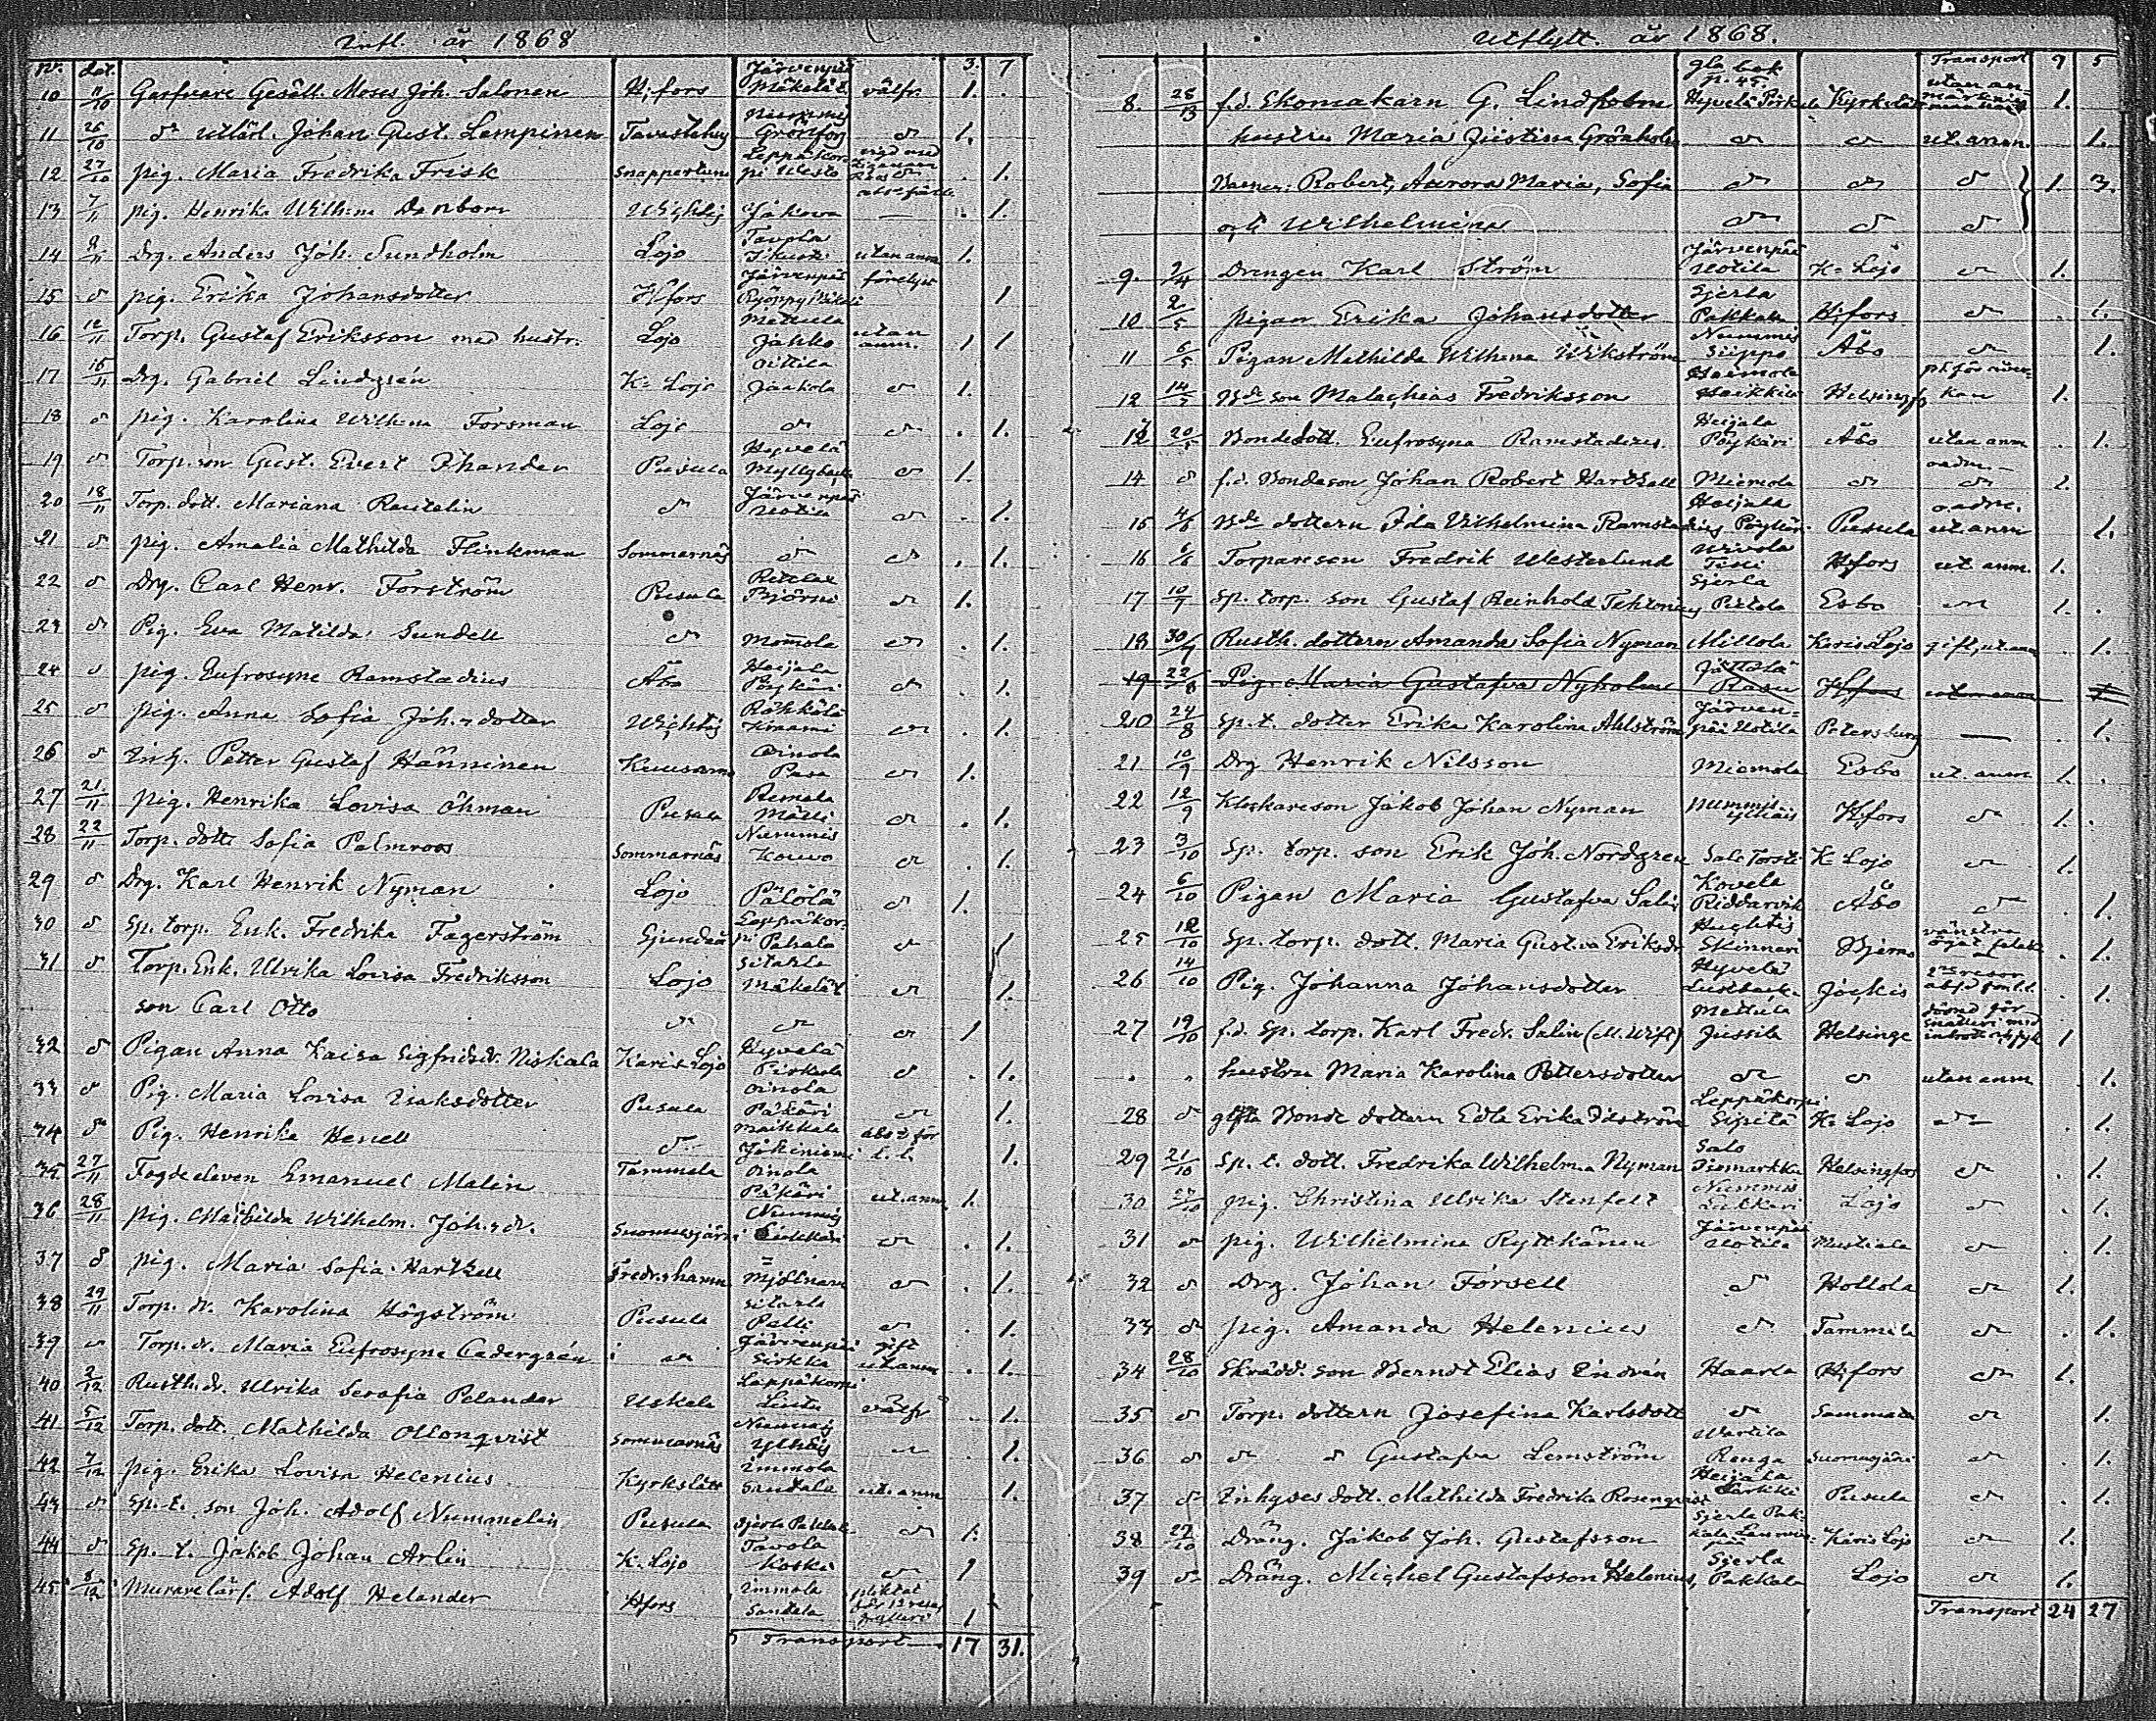 Infl. år 1868
Nr. dat. 3. 7
10 11/10 Garfvare Gesäll. Moses Joh. Salonen H:fors Järvenpää Mäkelä välfr. 1.
11 26/10 d:o utlärl. Johan Gust. Lempinen Tavastehus Nummis d:o 1.
12 27/10 pig. Maria Fredrika Frisk Snappertuna Leppäkorpi 1.
13 7/11 pig. Henrika Wilhma Wichtis Jakova — 1.
14 9/11 Drg. Anders Joh. Sundholm Lojo utan anm 1.
15 d:o pig. Erika Johansdotter H:fors Järvenpää 1
16 12/11 Torp. Gustaf Eriksson med hustr. Lojo Mettula Jakko utan anm. 1 1
17 15/11 Drg. Gabriel Lindgrén K. Lojo Oittila Jaakola d:o 1.
18 d:o pig. Karolina Wilhma Forsman Lojo d:o d:o 1.
19 d:o Torp. son Gust. Evert Pusula Hyvelä d:o 1.
20 18/11 Torp. dott. Mariana Rautelin d:o Järvenpää Uotila d:o 1.
21 d:o pig. Amalia Mathilda Flinkman Sommarnäs d:o d:o 1.
22 d:o Drg. Carl Henr. Forström Pusula Retlax Björni d:o 1.
23 d:o Pig. Eva Matilda Sundell d:o Mommola d:o 1.
24 d:o pig. Eufrosyne Ramstadius Åbo Heijala Pöykäri d:o 1.
25 d:o pig. Anna Sofia Joh.dotter Wichtis d:o 1.
26 d:o Inh. Petter Gustaf Hänninen Kuusamo Oinola Pasa d:o 1.
27 21/11 pig. Henrika Lovisa Öhman Pusula Remala d:o 1.
28 22/11 Torp. dott. Sofia Palmroos Sommarnäs Nummis Kouvo d:o 1.
29 d:o Drg. Karl Henrik Nyman Lojo Pälölä d:o 1.
30 d:o Sp. torp. Enk. Fredrika Fagerström Sjundeå Leppäkorpi d:o 1
31 d:o Torp. Enk. Ulrika Lovisa Fredriksson Lojo Sitarla Mäkelä d:o 1.
son Carl Otto d:o d:o d:o 1
32 d:o Pigan Anna Kaisa Sigfridsdr. Niskala Karis Lojo Hyvelä Pirkola d:o 1.
33 d:o Pig. Maria Lovisa Isaksdotter Pusula Oinola Päkäri d:o 1.
34 d:o Pig. Henrika d:o Maikkala Jokiniemi abs:d för 1.
35 27/11 Fogdeeleven Emanuel Malin Tammela Oinola Päkäri ut. anm. 1.
36 28/11 pig. Mathilda Wilhelm. Joh.dr. Suomusjärvi Nummis d:o 1.
37 d:o pig. Maria Sofia Hartzell Fredr.shamn Mjölnare d:o 1.
38 29/11 Torp. dr. Karolina Högström Pusula Sitarla Pelli d:o 1.
39 d:o Torp. dr. Maria Eufrosyne Cedergrén d:o Järvenpää Sirkka gift ut. anm 1.
40 2/12 Rusth. dr. Ulrika Serafia Pelander Uskela Leppäkorpi Lintu välfr 1.
41 5/12 Torp. dott. Mathilda Ollonqvist Sommarnäs Nummis d:o 1.
42 7/12 pig. Erika Lovisa Helenius Kyrkslätt Immola Santala ut. anm 1.
43 d:o Sp. t. son Joh. Adolf Nummelin Pusula Sjerla Pakkala d:o 1.
44 d:o Sp. t. Jakob Johan Arlin K. Lojo Tavola Koski d:o 1
45 8/12 Murarelärl. Adolf Helander Hfors Immola Santala 1
Transport 17 31.
Utflytt. år 1868.
gla bok p. 45. Transport 9 5
8. 28/3 f.d. Ekonomakarn G. Lindholm Hyvelä Pirkola Kyrkslätt utan anmärkning 1.
hustru Maria Justina Grönholm d:o d:o ut. anm. 1.
Barner: Robert, Aurora Maria, Sofia d:o d:o d:o 1. 3.
och Wilhelmina d:o d:o
9. 2/4 Drengen Karl Ström Järvenpää Uotila K. Lojo d:o 1.
10 2/5 pigan Erika Johansdotter Sjerla Pakkala H:fors d:o 1.
11 6/5 Pigan Mathilda Wilhma Wikström Nummis Siippo Åbo d:o 1.
12 14/5 B:de son Malachias Fredriksson Haimola Heikkilä Helsingfs 1.
13 20/5 Bondedott. Eufrosyna Ramstadius Heijala Pöykäri Åbo utan anm 1.
14 d:o f.d. Bondeson Johan Robert Hartzell Miemola d:o d:o 1.
15 4/6 B:de dottern Ida Wilhelmina Ramstadius Heijala Pöykäri Pusula ut. anm 1.
16 6/6 Torpareson Fredrik Westerlund H:fors ut. anm. 1.
17 10/7 Sp. torp. son Gustaf Reinhold Sjerla Esbo d:o 1.
18 30/7 Rusth. dottern Amanda Sofia Nyman Millola Karis Lojo gift, ut. anm 1.
19 22/8 Pig. Maria Gustafva Nyholm Rasu H:fors utan anm 1
20 24/8 Sp. t. dotter Erika Karolina Ahlström Järvenpää Uotila Petersburg — 1.
21 10/9 Drg Henrik Nilsson Miemola Esbo ut. anm 1.
22 12/9 Klockareson Jakob Johan Nyman Nummis H:fors d:o 1.
23 3/10 Sp. torp. son Erik Joh. Nordgren Salo Torsti K. Lojo d:o 1.
24 6/10 Pigan Maria Gustafva Salin Kovela Riddarvik Åbo d:o 1.
25 12/10 Sp. torp. dott. Maria Gust.va Eriksdr Huhtis Skinnari Bjerno 1.
26 14/10 Pig. Johanna Johansdotter Hyvelä Jockis 1.
27 19/10 f.d. Sp. torp. Karl Fredr. Salin Mettula Jussila Helsinge 1
hustru Maria Karolina Pettersdotter d:o d:o utan anm 1.
28 d:o gifta Bonde dottern Edla Erika Leppäkorpi Sipilä K. Lojo d:o 1.
29 21/10 Sp. t. dott. Fredrika Wilhelm.a Nyman Salo Helsingfors d:o 1.
30 27/10 pig. Christina Ulrika Stenfelt Nummis Lojo d:o 1.
31 d:o pig. Wilhelmina Rytkönen Järvenpää Uotila Mustiala d:o 1.
32 d:o Drg. Johan Forsell d:o Hollola d:o 1.
33 d:o pig. Amanda Helenius d:o Tammela d:o 1.
34 28/10 Skrädd. son Berndt Elias Lindrén Haarla H:fors d:o 1.
35 d:o Torp. dottern Josefina Karlsdott d:o Sammatti d:o 1.
36 d:o d:o d:o Gustafva Lemström Wartila Ranga Suomusjärvi d:o 1.
37 d:o Inhyses dott. Mathilda Fredrika Rosenqvist Heijala Särkki Pusula d:o 1.
38 27/10 Dräng. Jakob Joh. Gustafsson Sjerla Pakkala Karis Lojo d:o 1.
39 d:o Dräng. Michel Gustafsson Helenius, Sjerla Pakkala Lojo d:o 1.
Transport 24 27